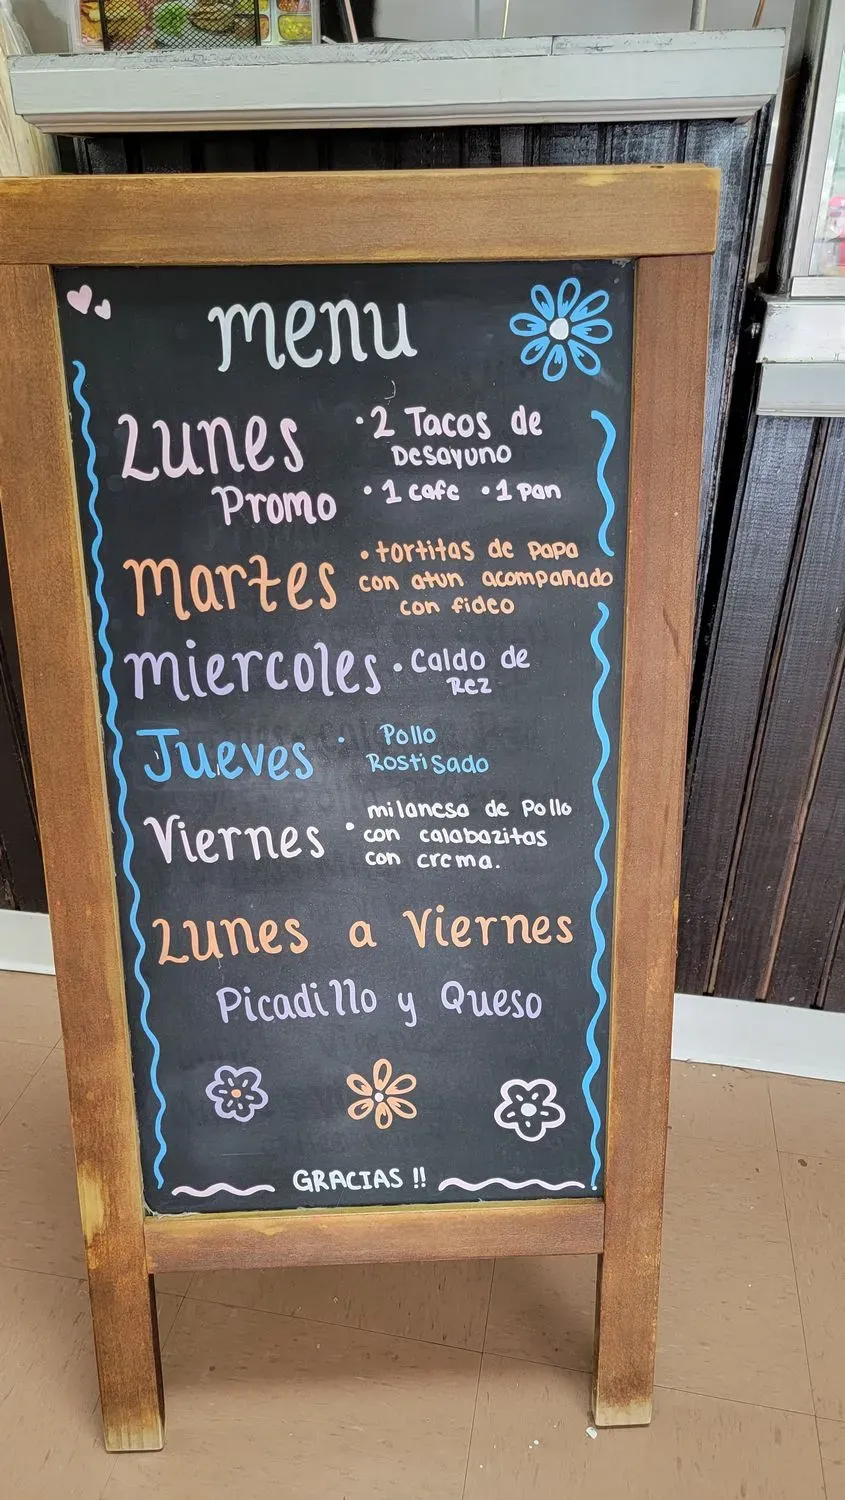 menu
Lunes
• 2 Tacos de
Desayuno
Promo
• 1 cafe • 1 pan
Martes
• tortitas de papa
con atun acompañado
con fideo
miercoles
• Caldo de
Rez
Jueves
• Pollo
Rostisado
Viernes
• milanesa de Pollo
con calabazitas
con crema.
Lunes a Viernes
Picadillo y Queso
GRACIAS !!